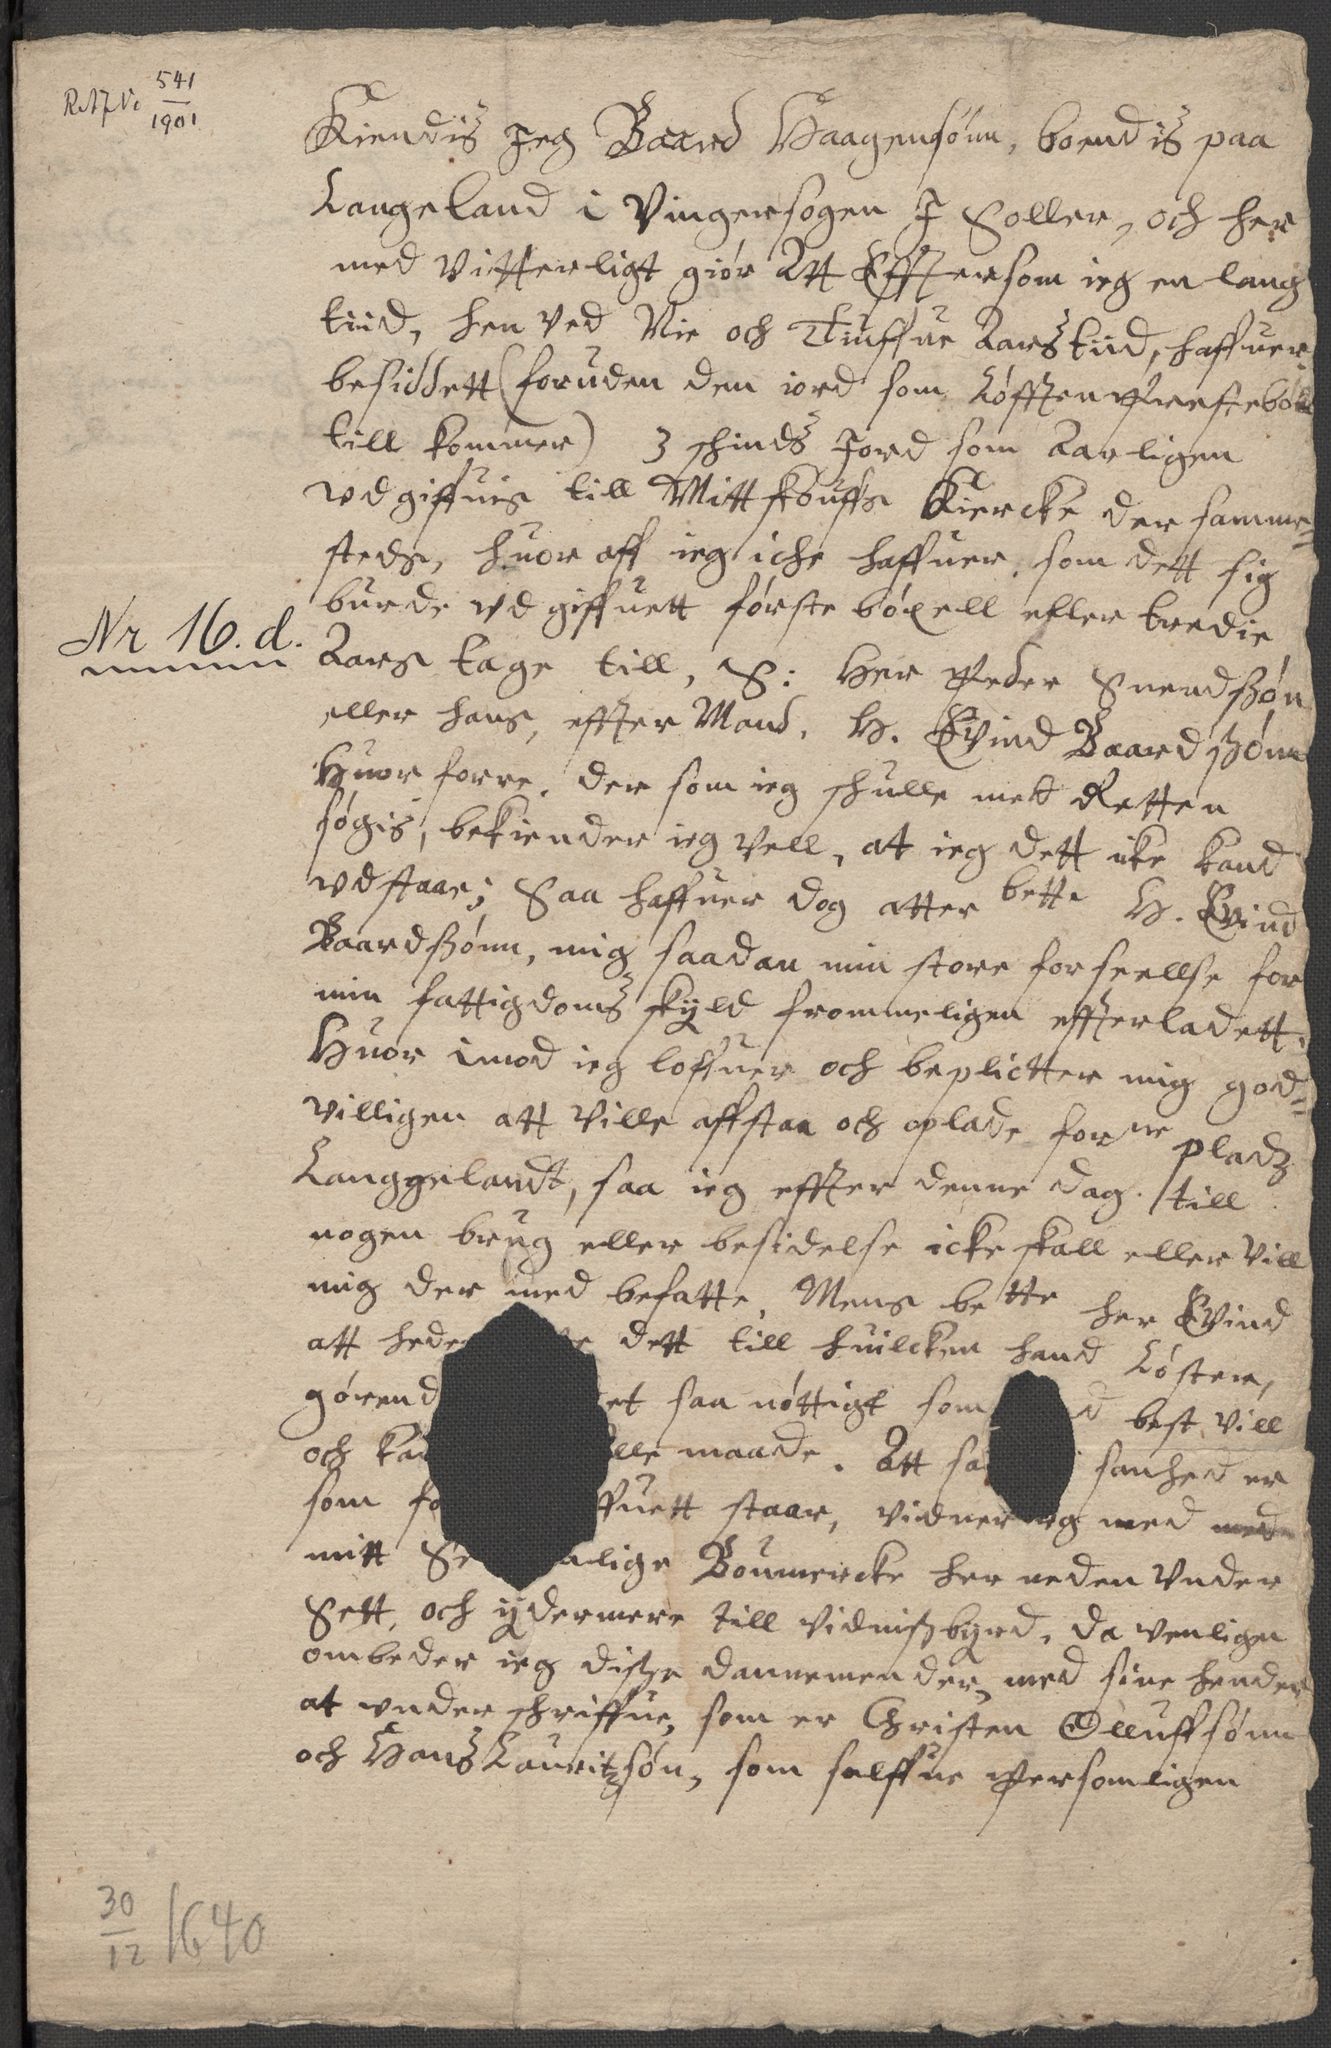 541
1901
Kiendis Jeg Baard Haagensønn, boendis paa
Langeland i Vingersogen J Soller, och her
med Vitterligt giør Att Effttersom ieg en lang
tiid, hen ved Nie och Tiuffue Aars tiid, haffuer
besiddett (foruden den iord som Løfften Prestebol
till kommer) 3 schinds Jord som Aarligen
vdgiffuis till Mittskouffs Kiercke der samme-
steds, huor aff ieg iche haffuer, som dett sig
burde vdgiffuett første bøxell eller tredie
Nr 16. d.
Aars tage till, S: Her Peder Suendßøn
eller hans, effter Mand, H. Evind Baardßønn
Huor forre, der som ieg schulle mett Retten
søgis, bekiender ieg vell, at ieg dett icke kand
vdstaae; Saa haffuer dog atter bette H. Evind
Baardßønn, mig saadan min store forseellse for
min fattigdoms skyld frommeligen effterladett.
Huor imod ieg loffuer och beplicter mig god-
villigen att ville affstaa och oplade forne pladz
Langgelandt, saa ieg effter denne dag till
nogen brug eller besidelse icke skall eller vill
mig der med befatte, Mens bette her Evind
att hede dett till huilcken hand Løster,
gørend et saa nøttigt som best vill
och ka lle maade. Att sa sanhed er
som fo ffuett staar, vidner ieg med
mitt Se lige Boumercke her neden vnder
Sett, och ydermere till vidnißbyrd, da venligen
ombeder ieg disße dannemender, med sine hender
at vnderschriffue, som er Christen Olluffsønn
och Hans Lauritzsøn, som selffue Personligen
30
12 1640